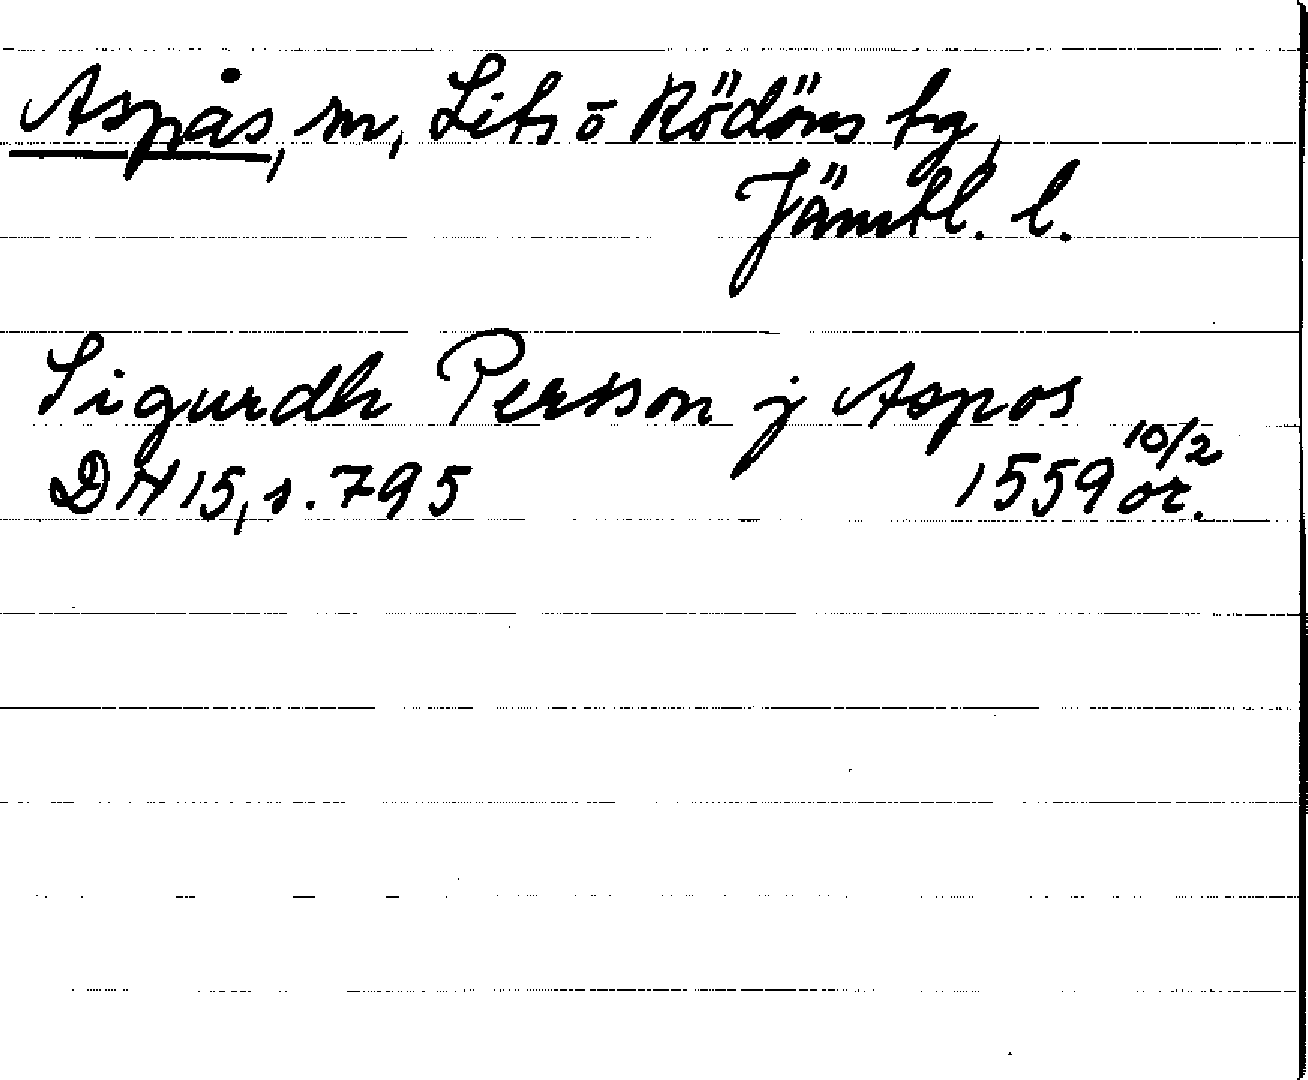 Aspås, sn, Lits ō Rödöns tg,
Jämtl. l.
Sigurdh Persson j Aspos
DN 15, s. 795 1559 10/2 or.